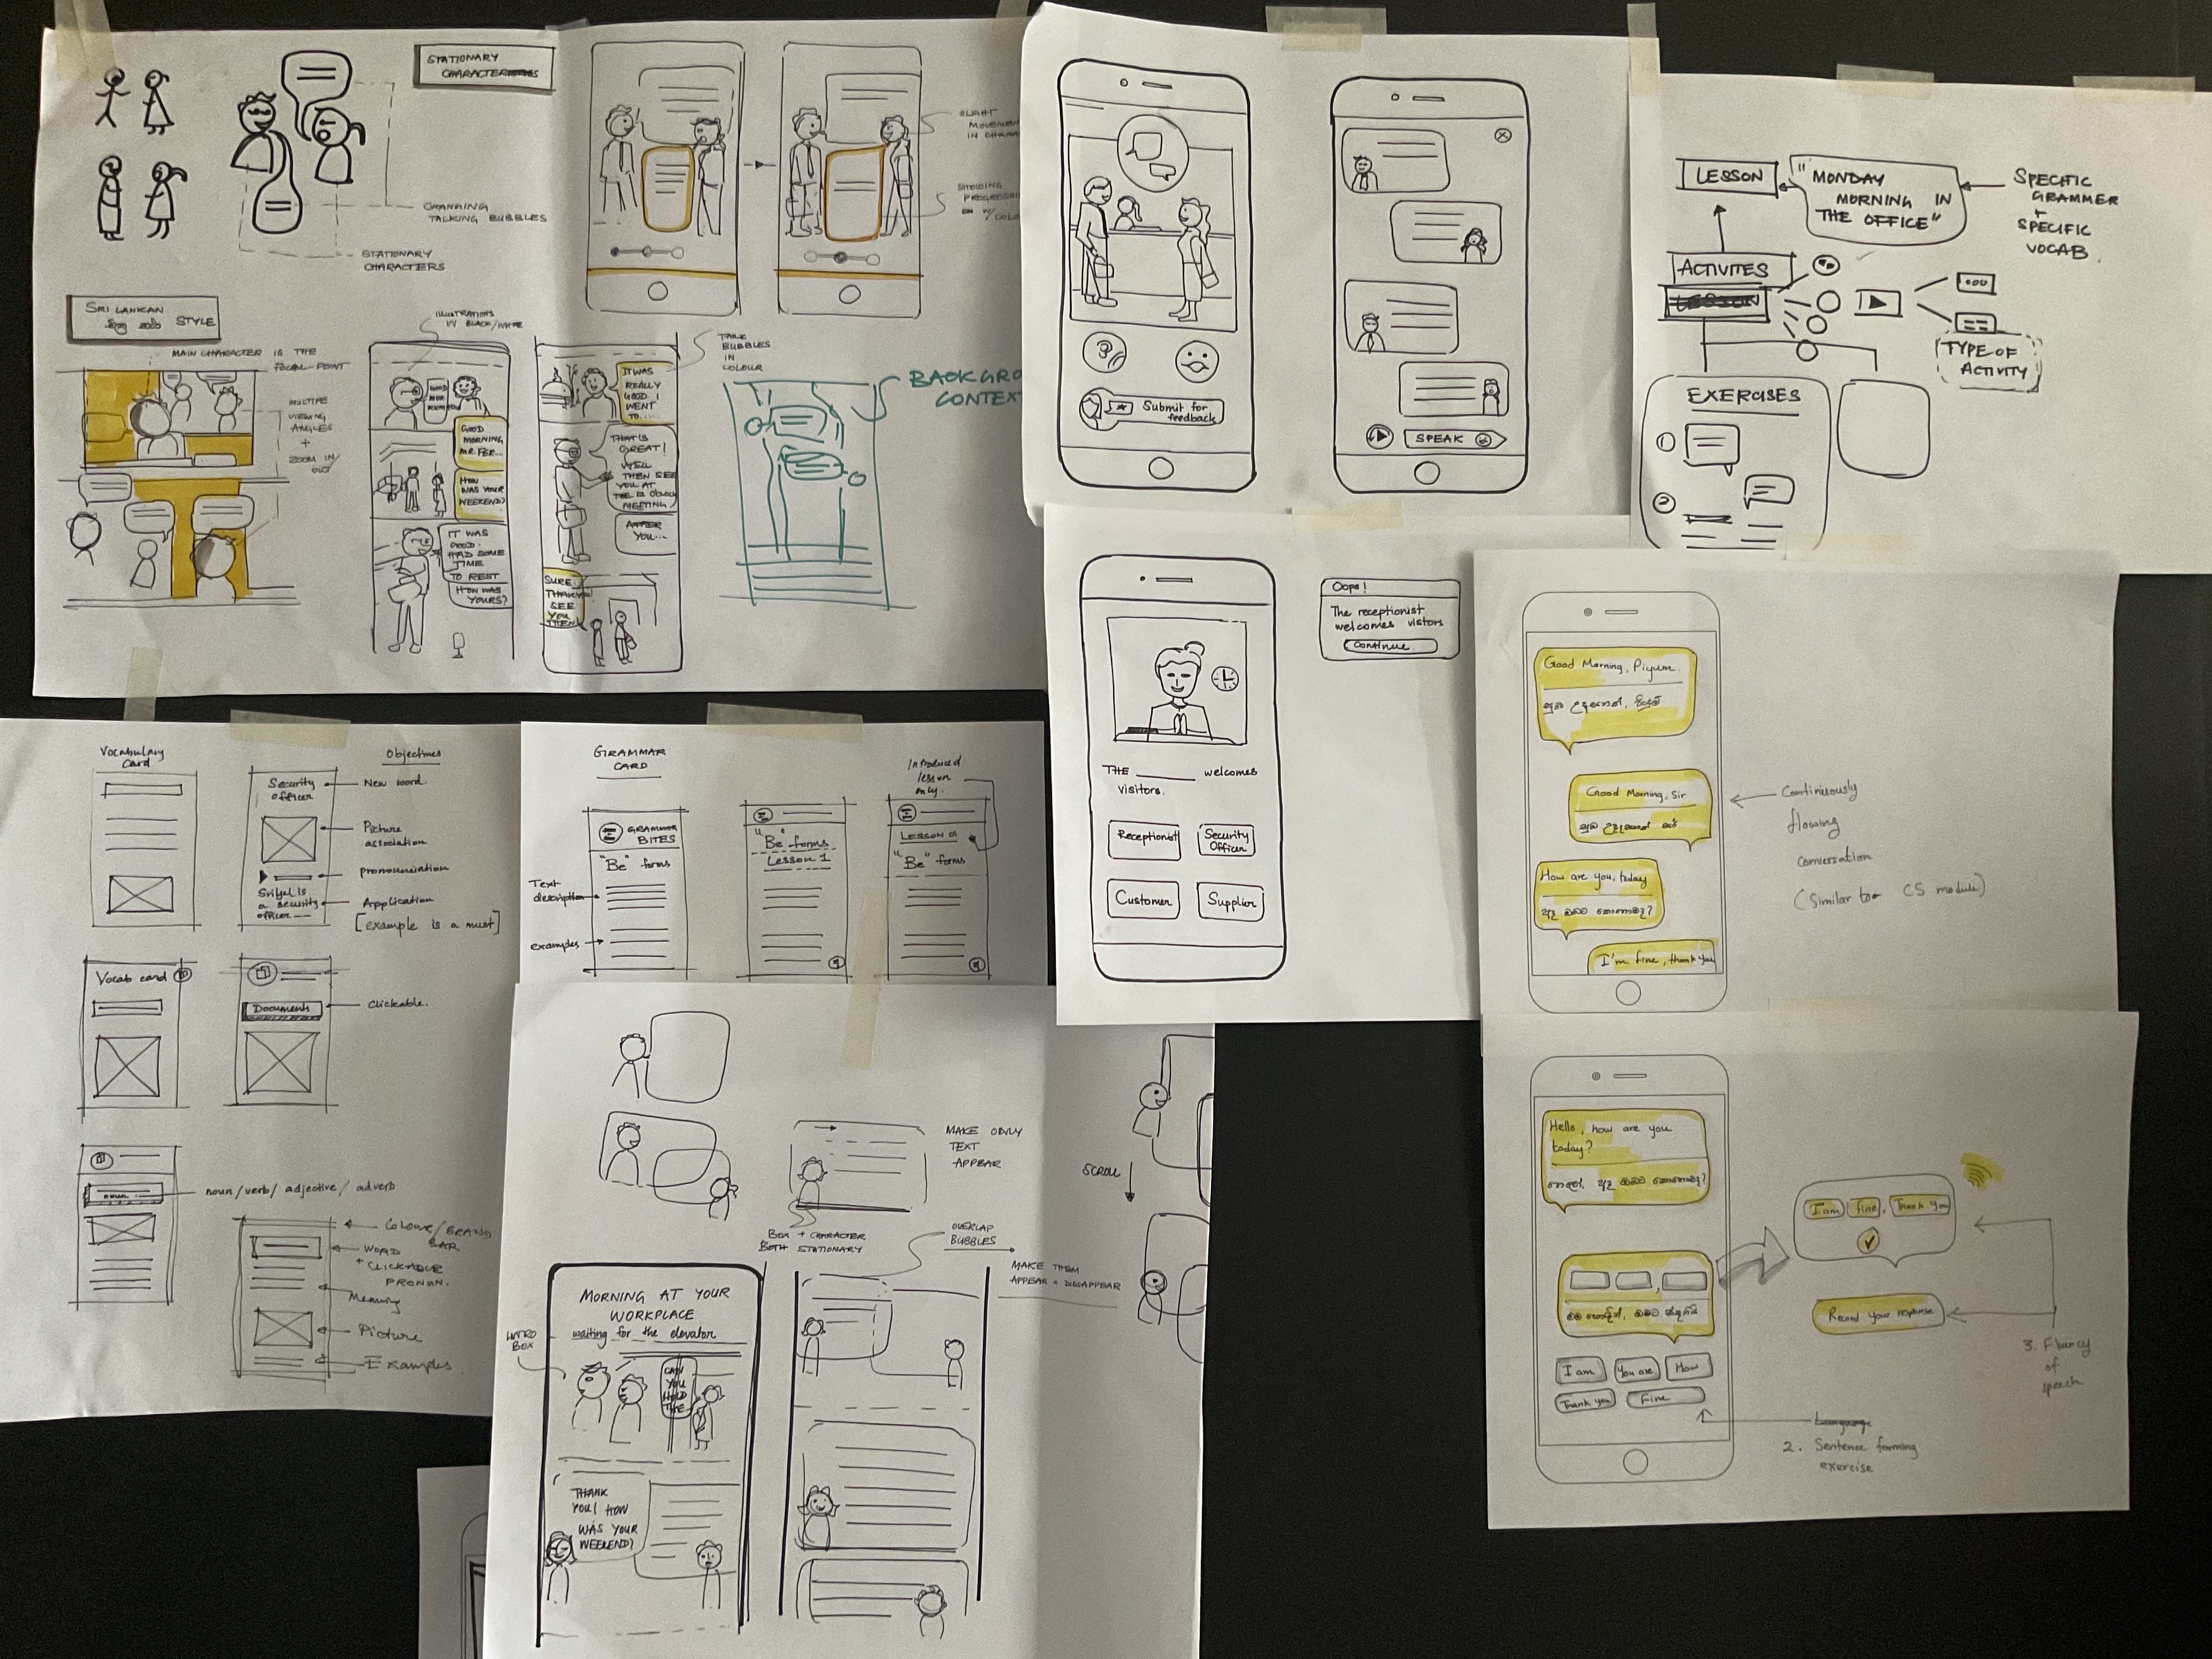 STATIONARY
CHARACTERS
CHANGING
TALKING BUBBLES
STATIONARY
CHARACTERS
SLIGHT
MOVEMEN
IN CHARA
SHOWING
PROGRESS
SRI LANKAN
STYLE
MAIN CHARACTER IS THE
FOCAL POINT
MULTIPLE
VIEWING
ANGLES
+
ZOOM IN/
OUT
ILLUSTRATIONS
IN BLACK/WHITE
GOOD
MORNING
MR. FER...
HOW
WAS YOUR
WEEKEND?
IT WAS
GOOD.
HAD SOME
TIME
TO REST
HOW WAS
YOURS?
TALK
BUBBLES
IN
COLOUR
IT WAS
REALLY
GOOD I
WENT
TO....
THAT IS
GREAT!
WELL
THEN SEE
YOU AT
MEETING
AFTER
YOU...
SURE.
SEE
YOU
THEN
BACKGRO
CONTEXT
Submit for
feedback
SPEAK
LESSON
"MONDAY
MORNING IN
THE OFFICE"
SPECIFIC
GRAMMER
+
SPECIFIC
VOCAB
ACTIVITES
LESSON
TYPE OF
ACTIVITY
EXERCISES
1
2
THE ______ welcomes
visitors.
Receptionist
Security
Officer
Customer
Supplier
Oops!
The receptionist
welcomes vistors
Continue
Good Morning, Piyum.
සුබ උදෑසනක්, පියුම්
Good Morning, Sir
සුබ උදෑසනක් සර්
How are you, today
අද ඔබට කොහොමද?
I'm fine, thank you
Continuously
flowing
conversation
(Similar to CS module)
Vocabulary
Card
Objectives
Security
officer
New word.
Picture
association
pronounciation
is
a security
officer
Application
[example is a must]
Vocab card
Documents
Clickable.
noun
noun/verb/adjective/adverb
Colour/BRAND
BAR
WORD
+ CLICKABLE
PRONUN.
Meaning
Picture
Examples.
GRAMMAR
CARD
GRAMMAR
BITES
"Be" forms
Text
description
examples
"Be" forms
Lesson 1
Introduced
lesson
only.
LESSON 01
"Be" forms
MAKE ONLY
TEXT
APPEAR
BOX + CHARACTER
BOTH STATIONARY
OVERLAP
BUBBLES
MAKE THEM
APPEAR & DISAPPEAR
SCROLL
INTRO
BOX
MORNING AT YOUR
WORKPLACE
waiting for the elevator
CAN
YOU
HOLD
THE
THANK
YOU! HOW
WAS YOUR
WEEKEND?
Hello, how are you
today?
අද ඔබට කොහොමද?
I am
You are
How
Thank you
Fine
I am fine, Thank you
Record your response
3. Fluency
of
speech
Language
2. Sentence forming
exercise